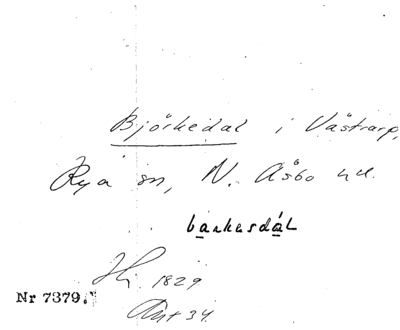 Björkedal i Västrarp,
Rya sn, N. Åsbo hd.
bærkesdál
1829
Nr 7379.
34.